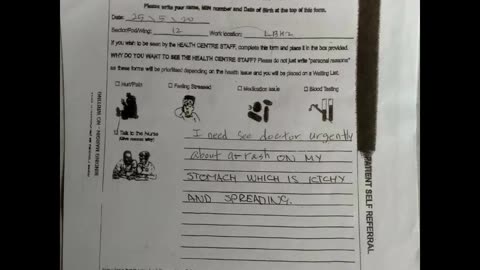 Please write your name, MIN number and Date of Birth at the top of this form.
Date: 25 \ 5 \ 20
Section/Pod/Wing: 12 Work location: LBH2
If you wish to be seen by the HEALTH CENTRE STAFF, complete this form and place it in the box provided.
WHY DO YOU WANT TO SEE THE HEALTH CENTRE STAFF? Please do not just write "personal reasons"
as these forms will be prioritised depending on the health issue and you will be placed on a Waiting List.
Hurt/Pain Feeling Stressed Medication Issue Blood Testing
Talk to the Nurse
I need see doctor urgently
about a rash ON MY
STOMACH WHICH IS ICTCHY
AND SPREADING.
PATIENT SELF REFERRAL